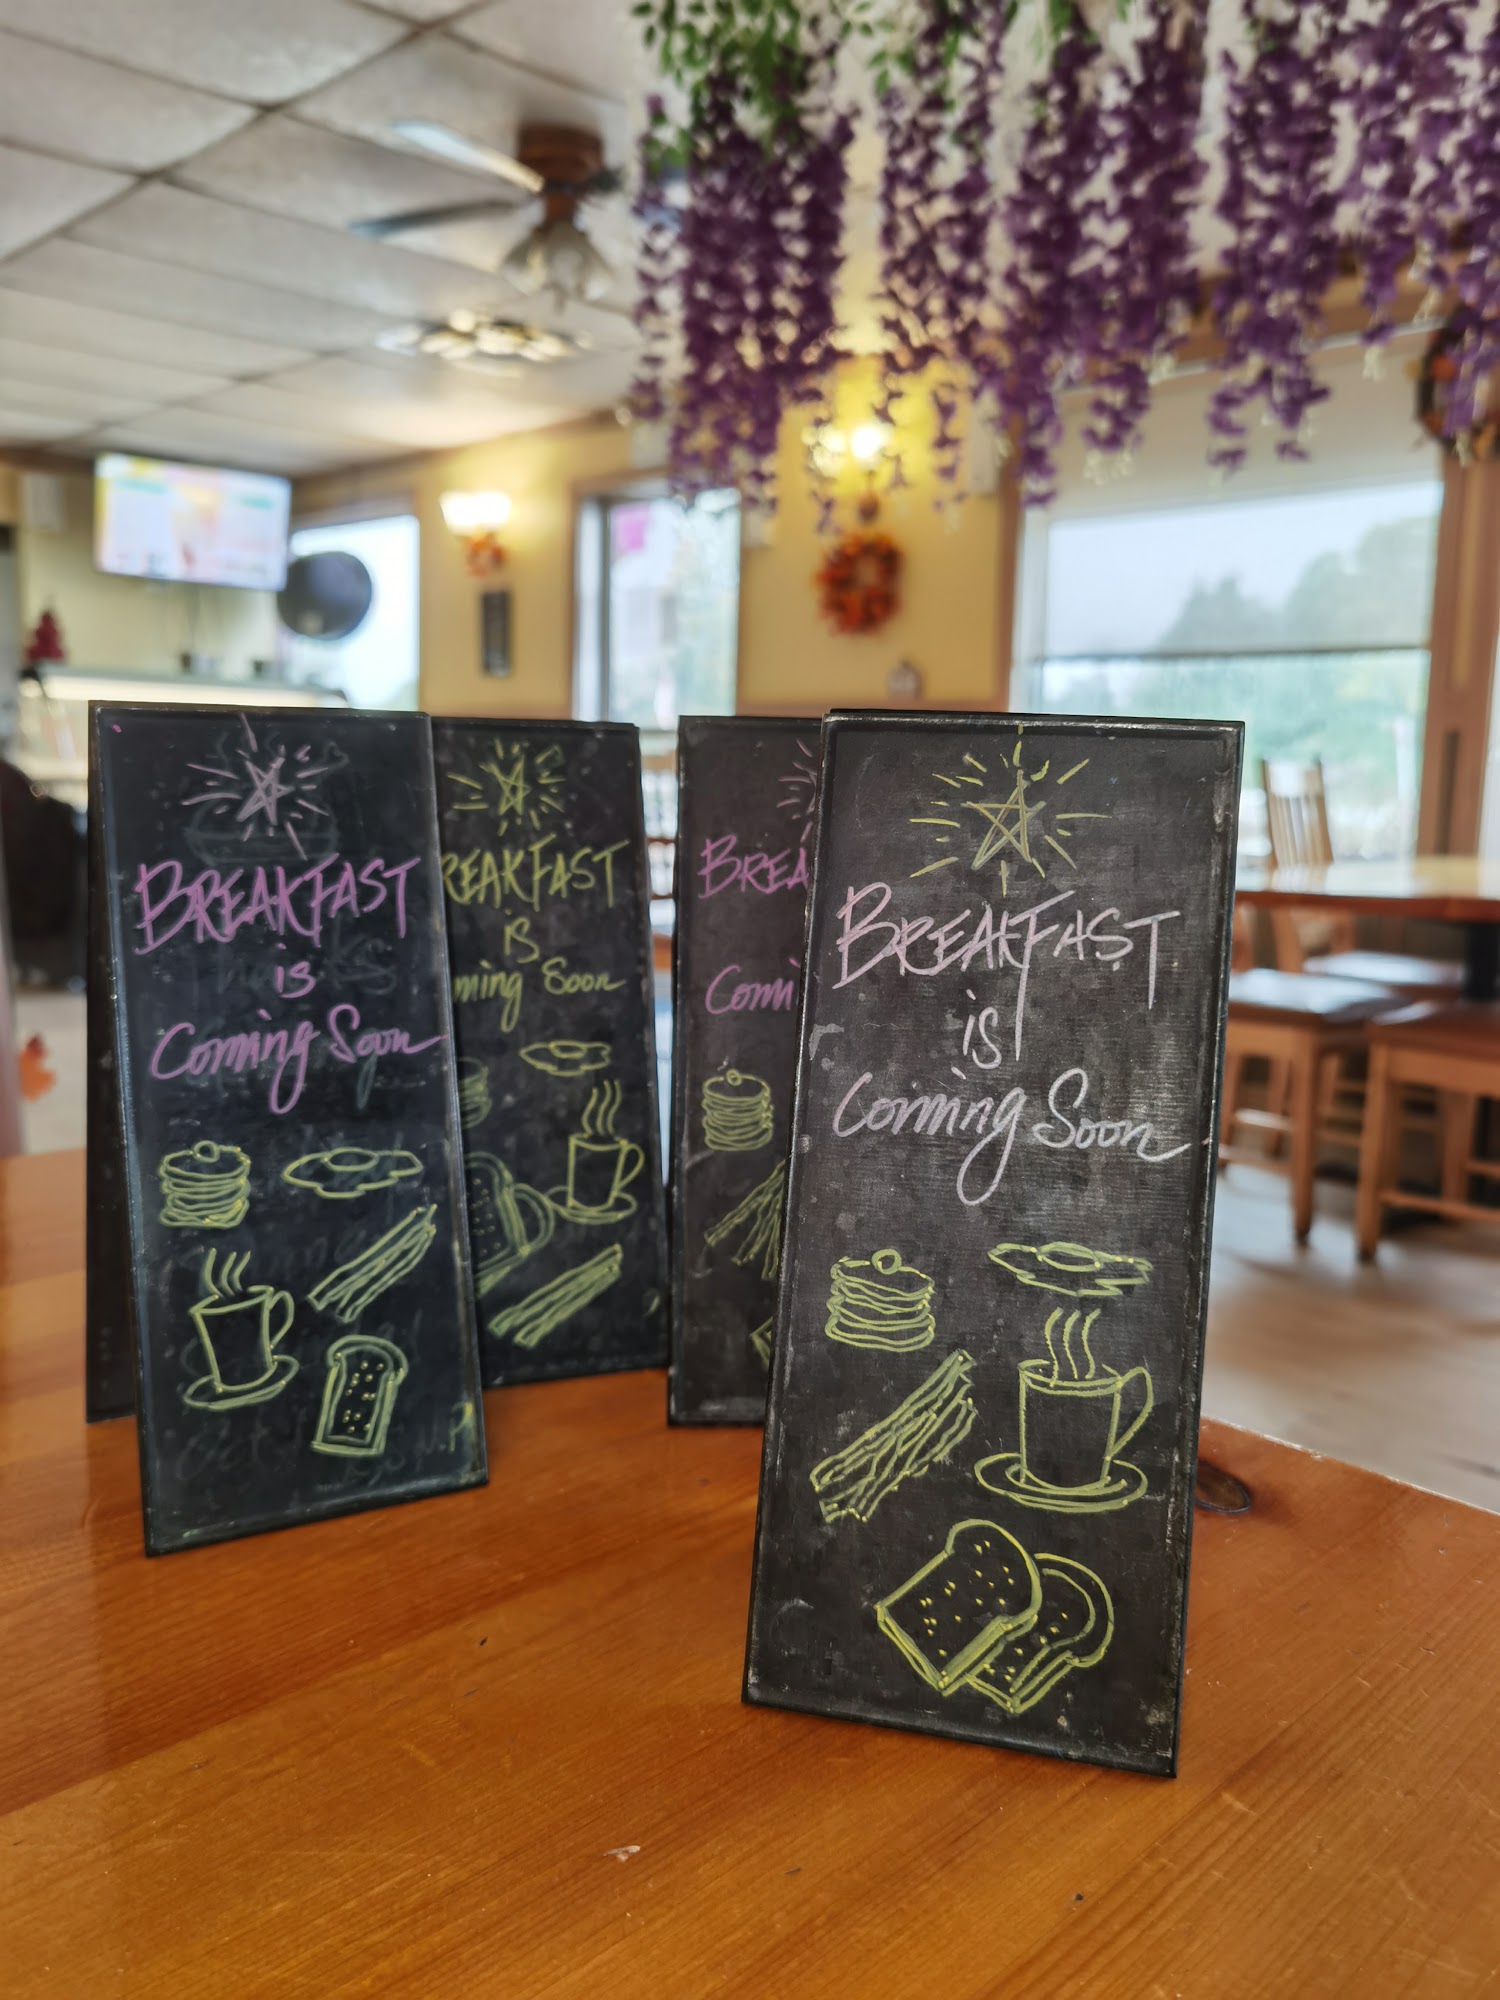 BREAKFAST
is
Coming Soon
REAKFAST
is
ming Soon
BREA
Comi
BREAKFAST
is
Coming Soon